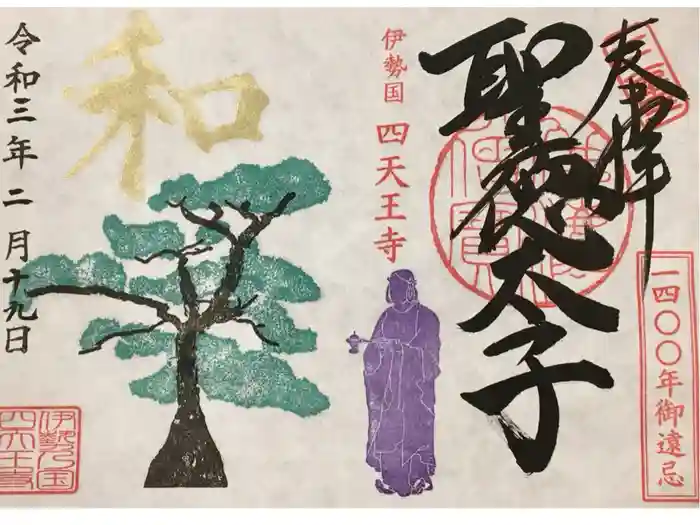 奉拝
聖徳太子
一四〇〇年御遠忌
伊勢国 四天王寺
和
令和三年二月十九日
伊勢乃国
四天王寺